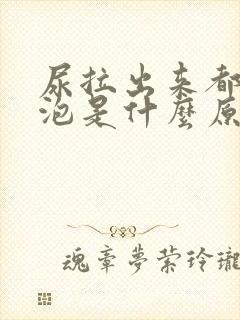 尿拉出来都
泡是什麼原
魂牽夢縈玲瓏